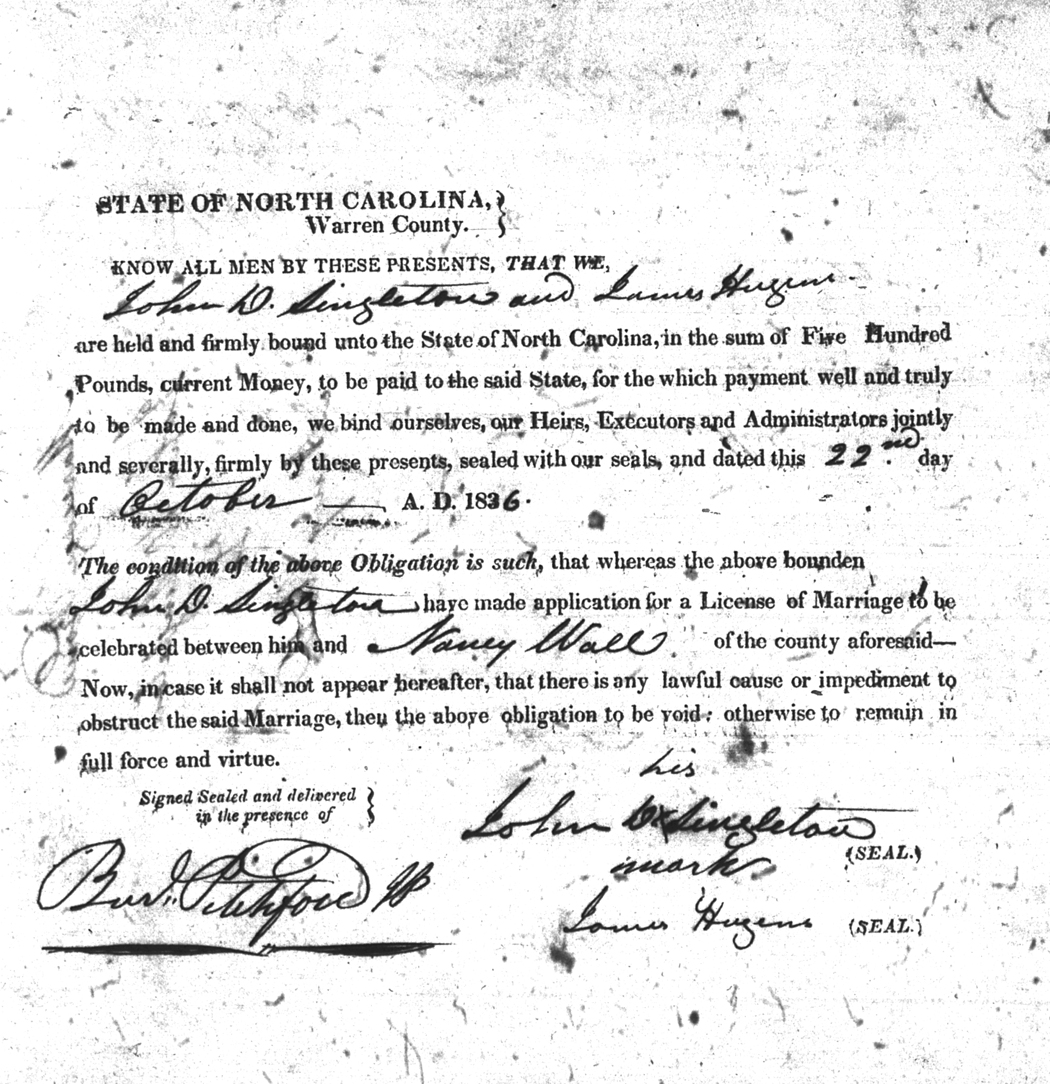 STATE OF NORTH CAROLINA,
Warren County.
KNOW ALL MEN BY THESE PRESENTS, THAT WE,
John D. Singleton and James Hugens
are held and firmly bound unto the State of North Carolina, in the sum of Five Hundred
Pounds, current Money, to be paid to the said State, for the which payment well and truly
to be made and done, we bind ourselves, our Heirs, Executors and Administrators jointly
and severally, firmly by these presents, sealed with our seals, and dated this 22nd day
of October A. D. 1836.
The condition of the above Obligation is such, that whereas the above bounden
John D. Singleton have made application for a License of Marriage to be
celebrated between him and Nancy Wall of the county aforesaid—
Now, in case it shall not appear hereafter, that there is any lawful cause or impediment to
obstruct the said Marriage, then the above obligation to be void: otherwise to remain in
full force and virtue.
Signed Sealed and delivered
in the presence of
his
John D X Singleton
(SEAL.)
mark
James Hugens (SEAL.)